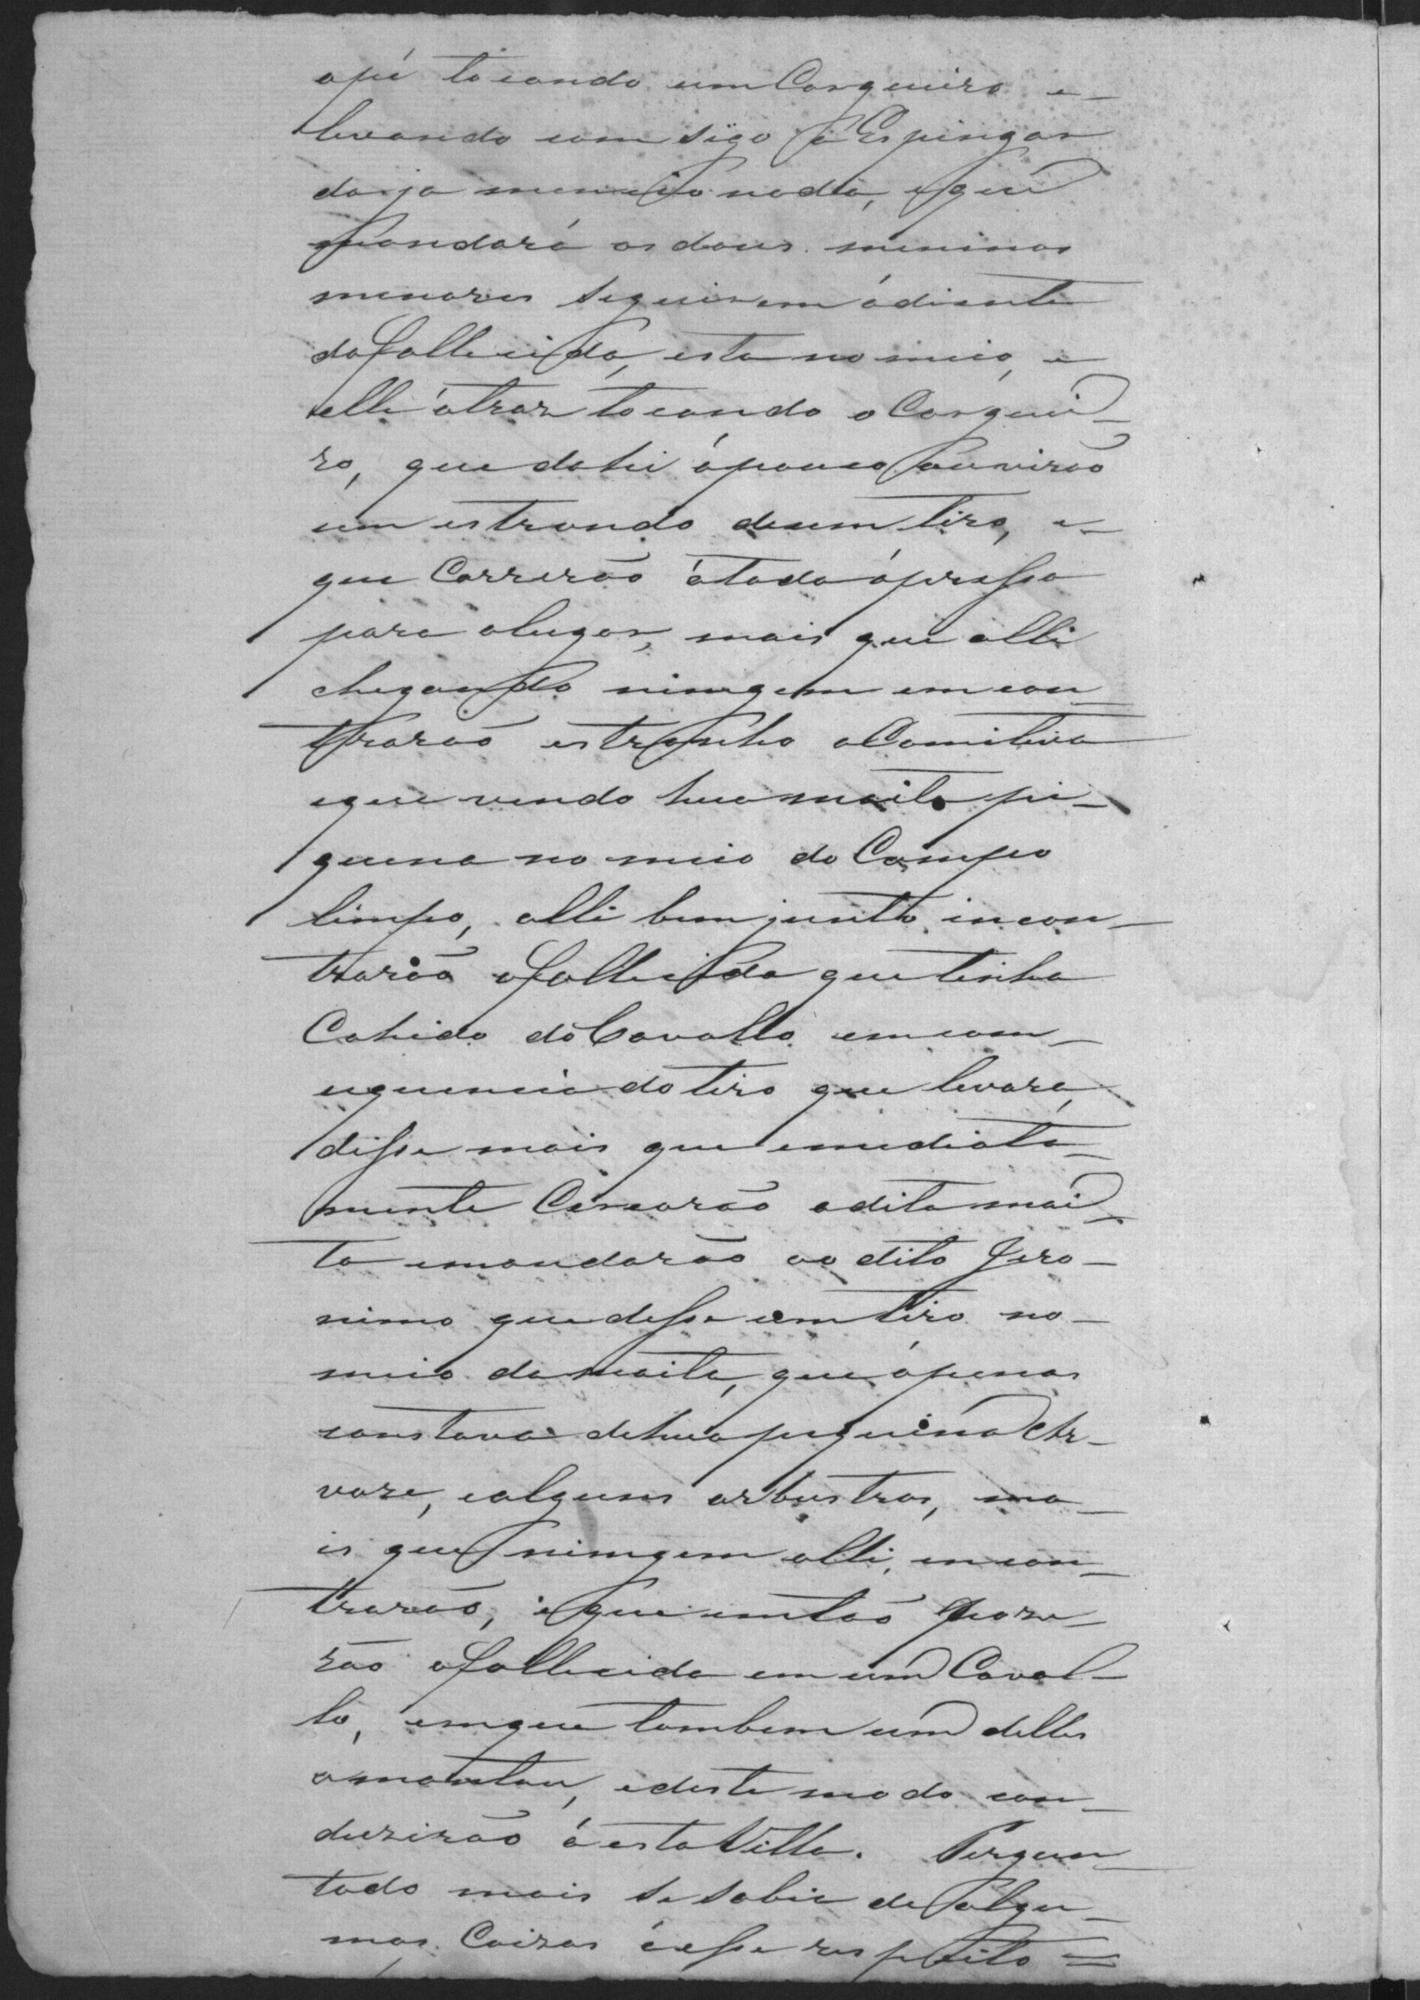 apé tocando um Cargueiro e-
levando com sigo a Espingar
da ja mencionada, e que
mandará os dous meninos
menores seguirem ádiante
da fallecida, esta no meio, e
elle átraz tocando o Carguei-
ro, que dahi ápouco ouvirão
um estrondo de um tiro, e-
que Correrão átoda ápressa
para olugar, mais que alli
chegando ningem emcon-
trarão estranho aComitiva
eque vendo hua moita pi-
quena no meio do Campo
limpo, alli bem junto incon-
trarão afallecida que tinha
Cahido do Cavallo em com-
equencia do tiro que levara,
disse mais que emediata-
mente Cercarão a dita moi-
ta emandarão ao dito Jero-
nimo que desse um tiro no-
meio da moita, que ápenas
constava de hua pequena Ar-
vore, ealguns arbustros, ma-
is que ningem alli, encon-
trarão, e que emtão poze-
rão afallecida em um Caval-
lo, emque tambem um delles
amontou, edeste modo con-
duzirão á esta Villa. Pergun-
tado mais se sabia de algu-
mas Coizas á esse respeito =